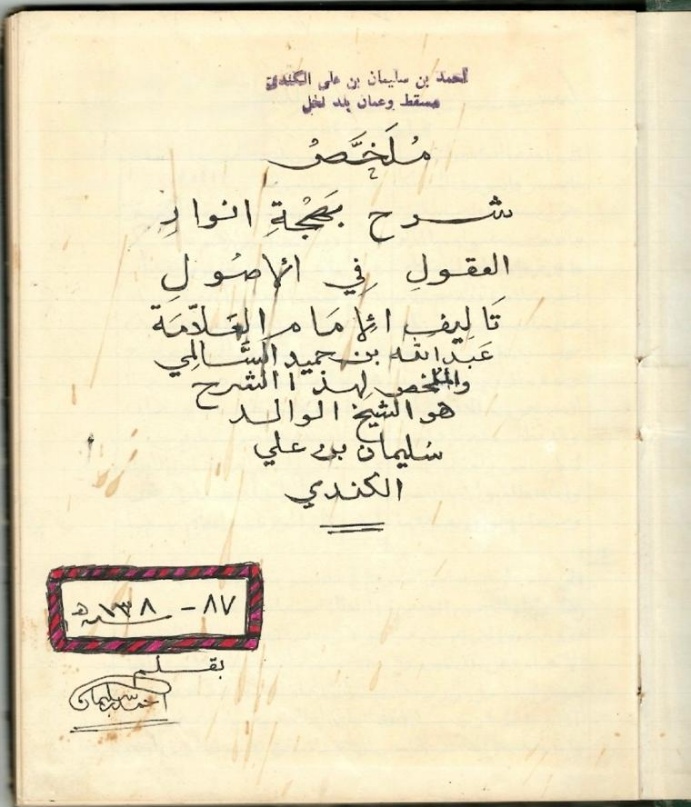 احمد بن سليمان بن علي الكندي
مسقط وعمان بلد نخل
مُلَخَّصُ
شرح بَهْجَةِ انوارِ
العقولِ فِي الاصُولِ
تَاليفِ الإمَامِ العَلاّمَة
عَبدالله بن حميد السَّالمِي
والملخص لهذا الشرح
هو الشيخ الوالد
سُليمان بن علي
الكندي
٨٧ - ١٣٨ سنة هـ
بقلم
احمد سليمان